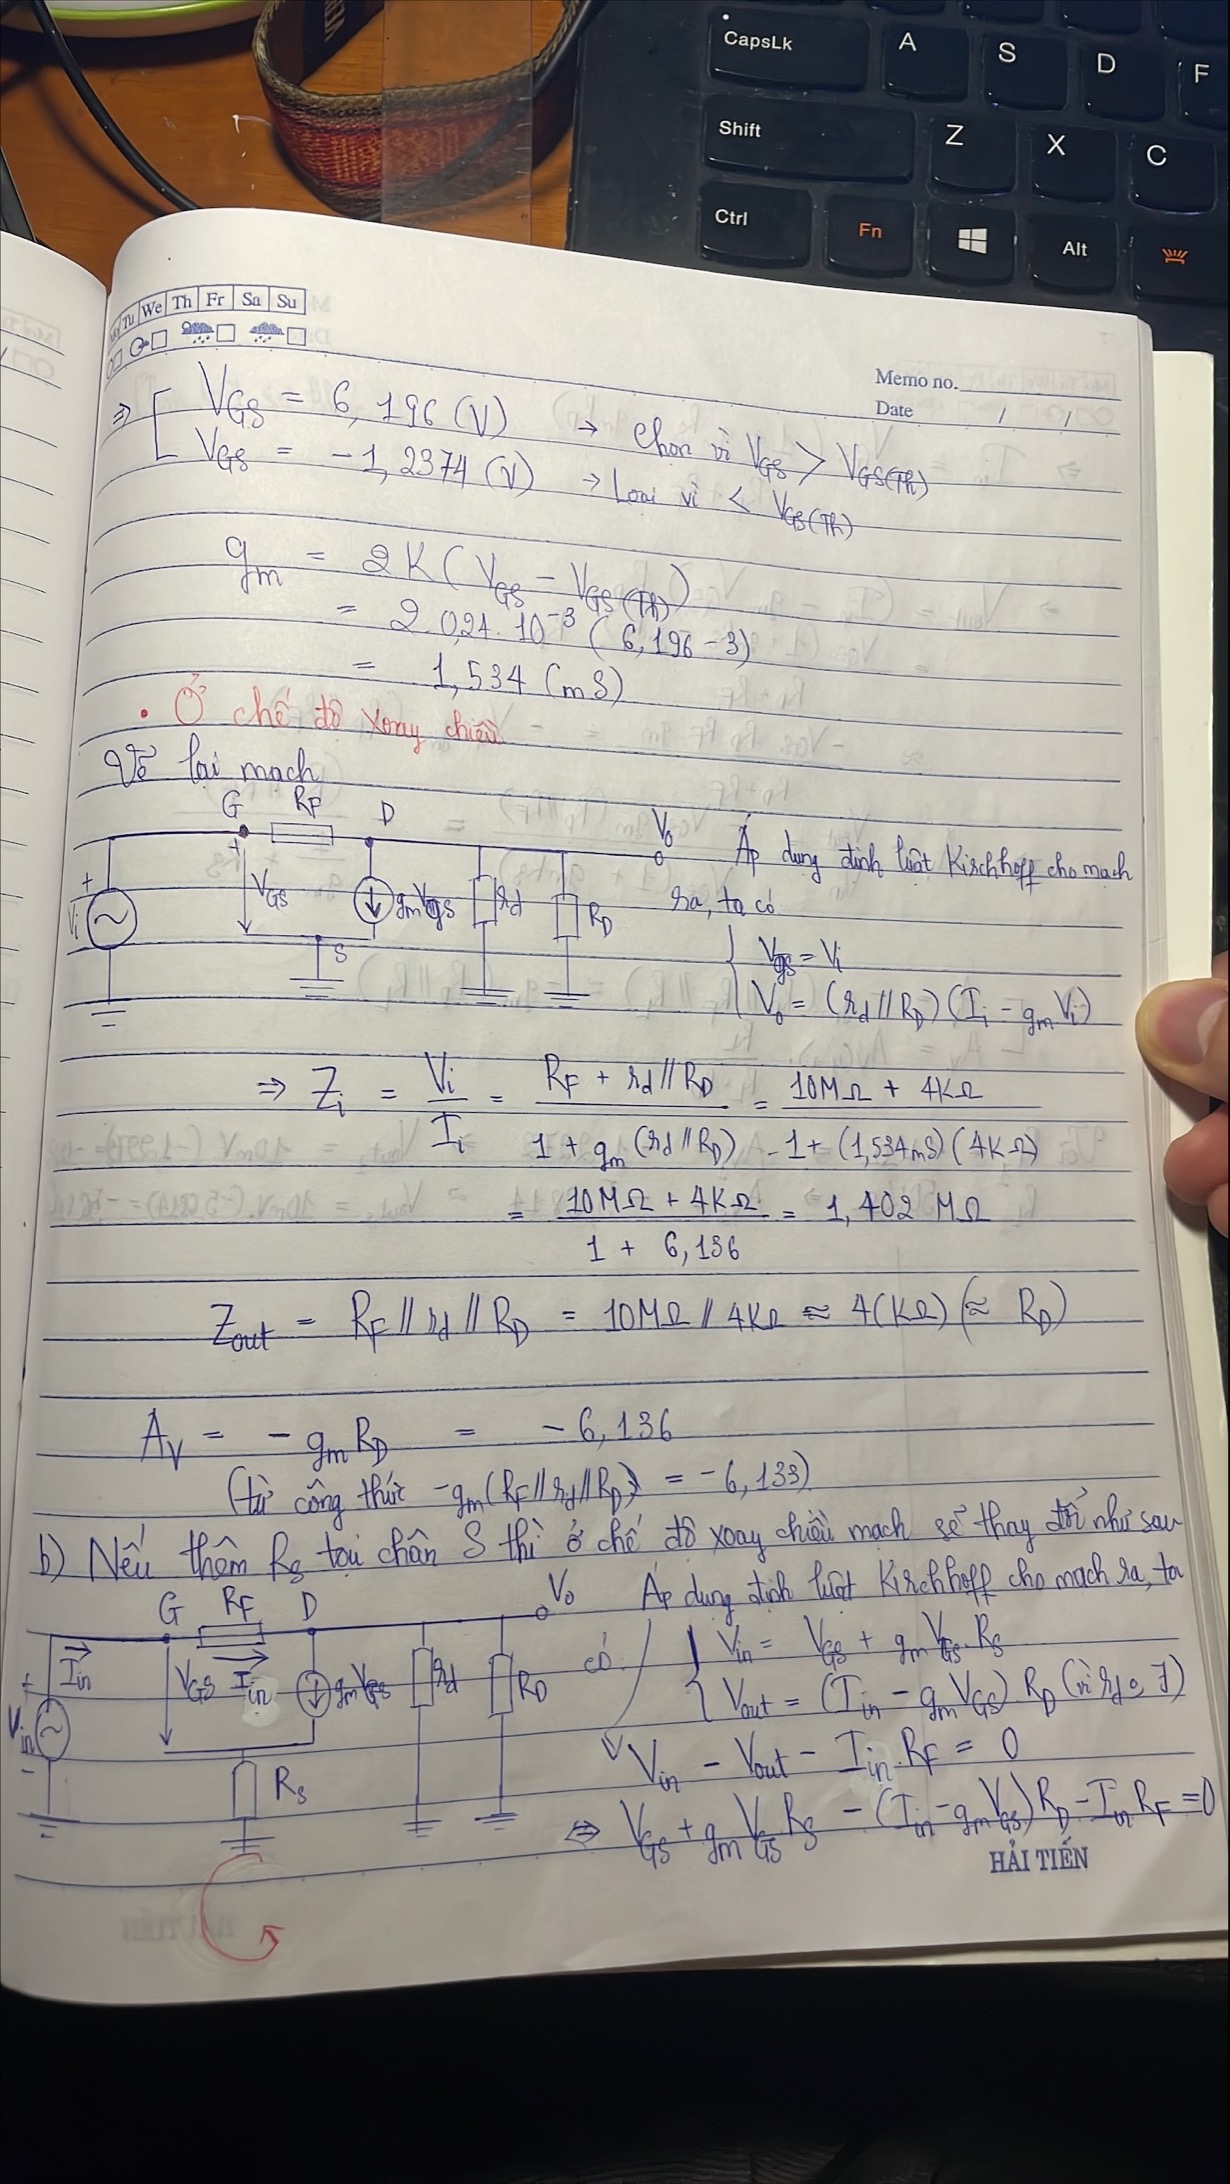 CapsLk A S D F
Shift Z X C
Ctrl Fn Alt
Tu We Th Fr Sa Su
Memo no.
Date / /
⇒ [ VGS = 6,196 (V) → Chọn vì VGS > VGS(Th)
VGS = -1,2374 (V) → Loại vì < VGS(Th)
gm = 2K (VGS - VGS(Th))
= 2. 0,24. 10⁻³ (6,196 - 3)
= 1,534 (mS)
• Ở chế độ xoay chiều
Vẽ lại mạch
G RF D V0
+ VGS gmVgs rd RD
Vi S
Áp dụng định luật Kirchhoff cho mạch
ra, ta có
Vgs = Vi
V0 = (rd // RD) (Ii - gmVi)
⇒ Zi = Vi / Ii = (RF + rd // RD) / (1 + gm (rd // RD)) = (10MΩ + 4KΩ) / (1 + (1,534mS) (4KΩ))
= (10MΩ + 4KΩ) / (1 + 6,136) = 1,402 MΩ
Zout = RF // rd // RD = 10MΩ // 4KΩ ≈ 4(KΩ) (≈ RD)
AV = - gm RD = - 6,136
(từ công thức -gm (RF // rd // RD) = -6,133)
b) Nếu thêm RS tại chân S thì ở chế độ xoay chiều mạch sẽ thay đổi như sau
G RF D V0
Iin VGS Iin gmVGS rd RD
+ Vin -
RS
Áp dụng định luật Kirchhoff cho mạch ra, ta
có
Vin = VGS + gm VGS. RS
Vout = (Iin - gm VGS) RD
Vin - Vout - Iin. RF = 0
⇔ VGS + gm VGS RS - (Iin - gm VGS) RD - Iin RF = 0
HẢI TIẾN